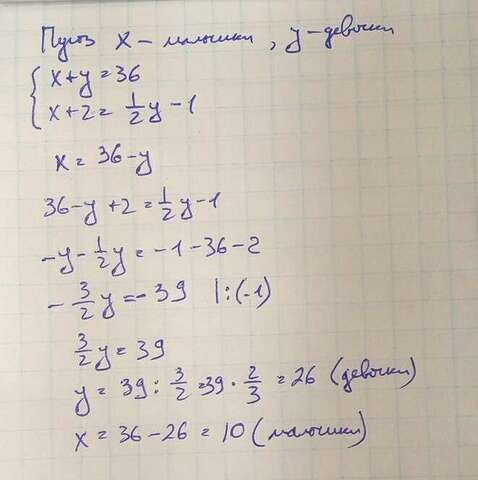 Пусть x - мальчики, y - девочки
{ x + y = 36
x + 2 = 1/2 y - 1
x = 36 - y
36 - y + 2 = 1/2 y - 1
-y - 1/2 y = -1 - 36 - 2
- 3/2 y = - 39 | : (-1)
3/2 y = 39
y = 39 : 3/2 = 39 · 2/3 = 26 (девочки)
x = 36 - 26 = 10 (мальчики)